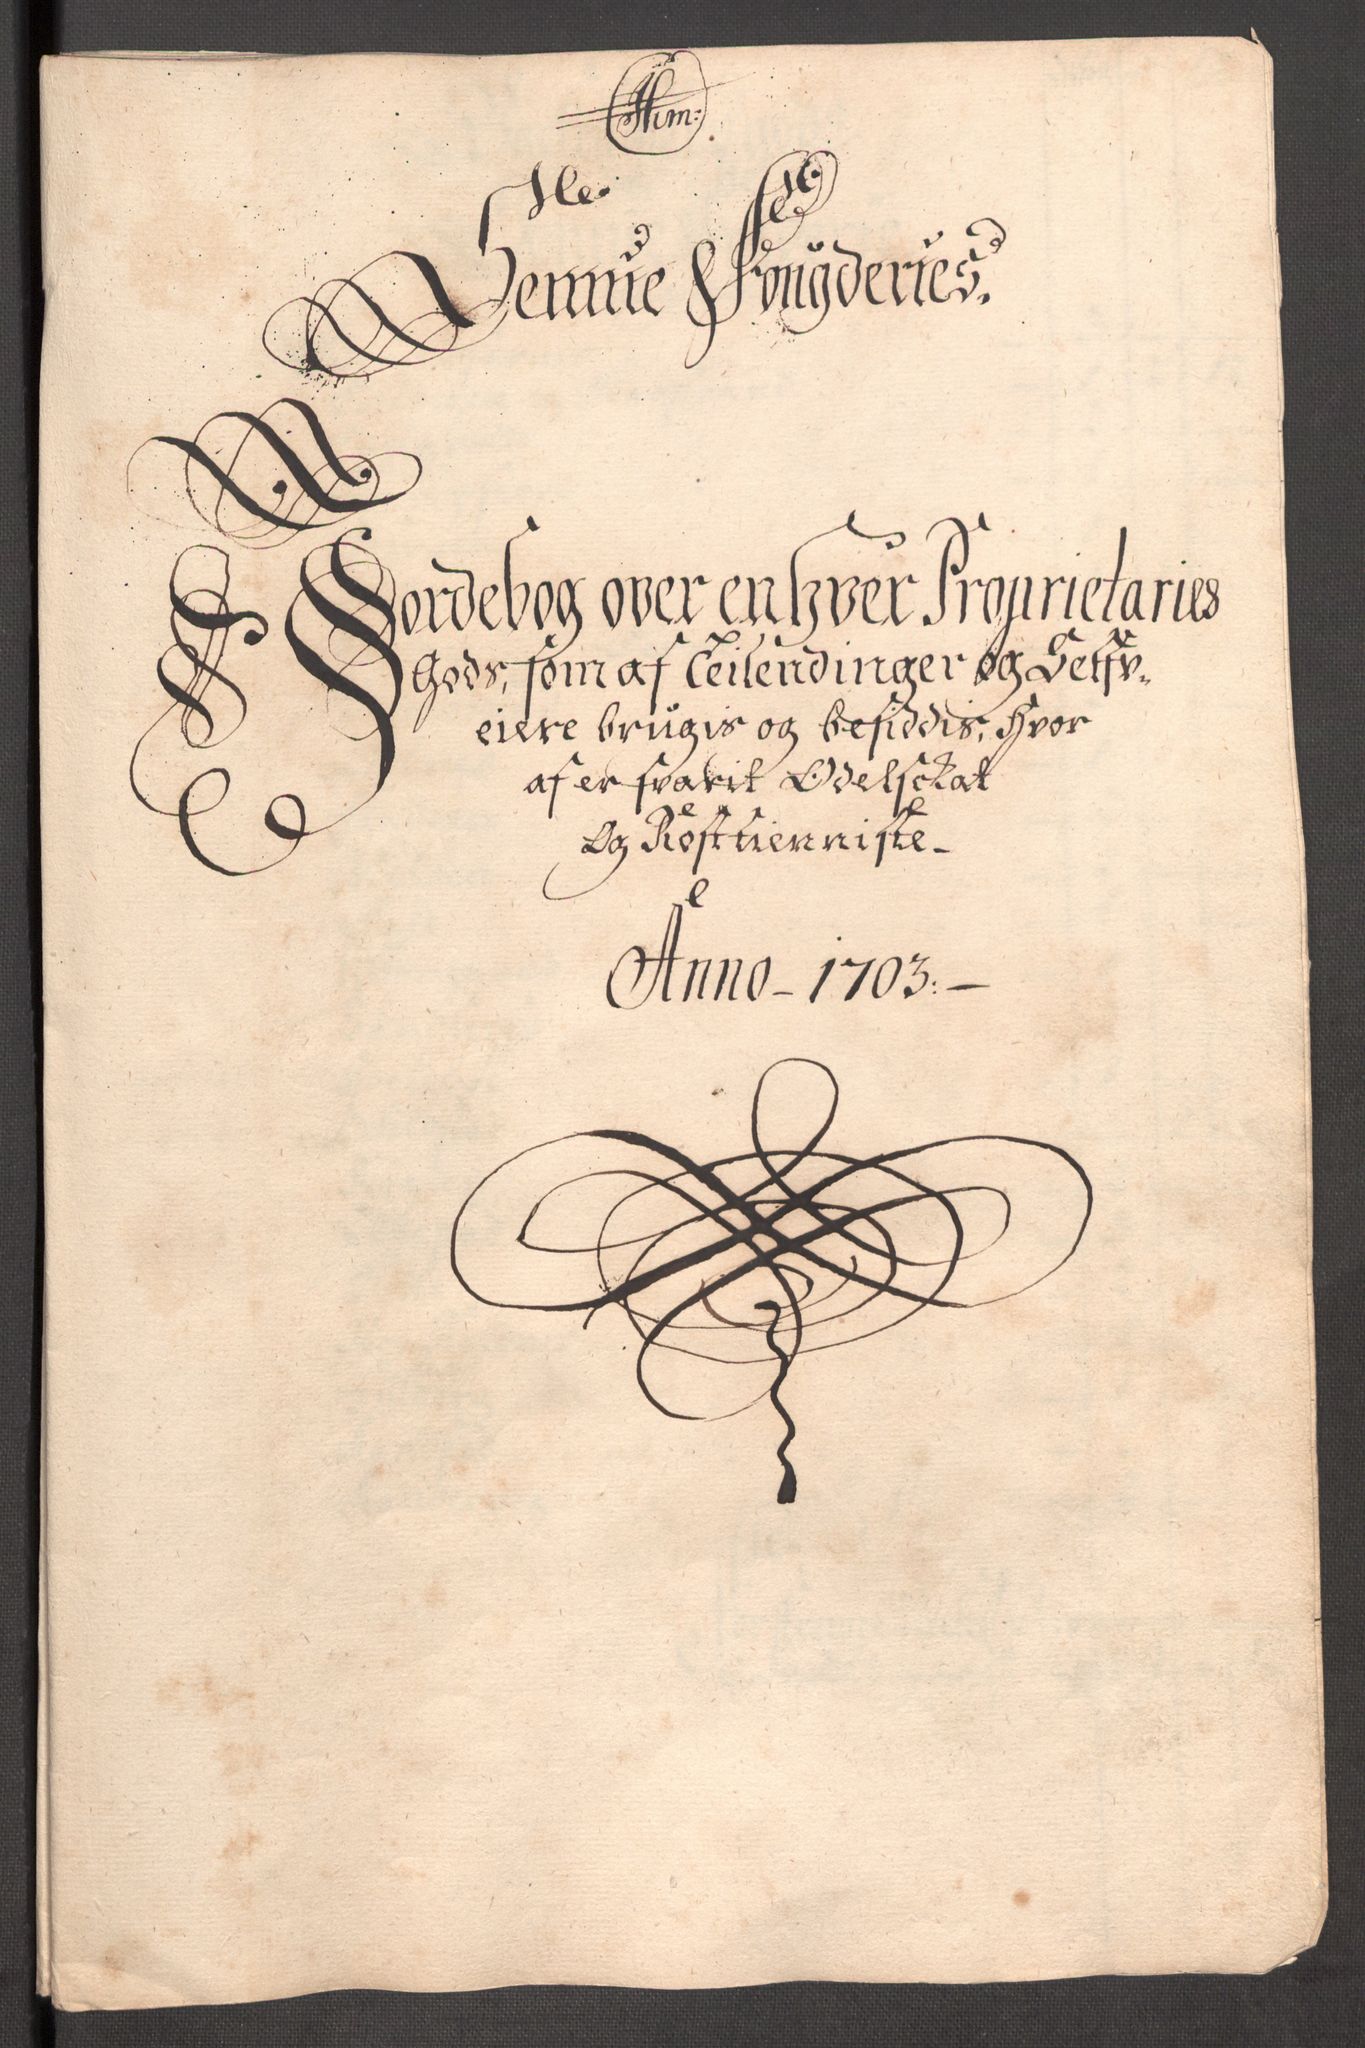 Hemnue Fougderies.
Jordebog over en hver Proprietaries
Gods, som af Leilendinger og Selfv-
eiere brugis og besiddis, hvor
af er svarit Odelsckat
Og Rostienniste -
Anno - 1703: -